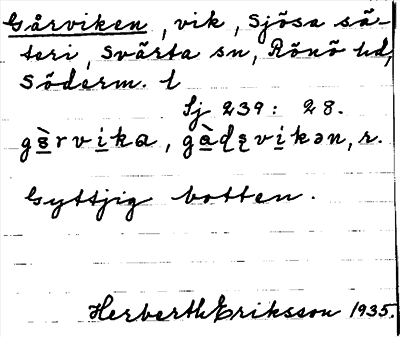 Gårviken, vik, Sjösa sä-
teri, Svärta sn, Rönö hd,
Söderm. l
Sj 239: 28.
gàrvika, gàdʂvikən, r.
Gyttjig botten.
Herberth Eriksson 1935.